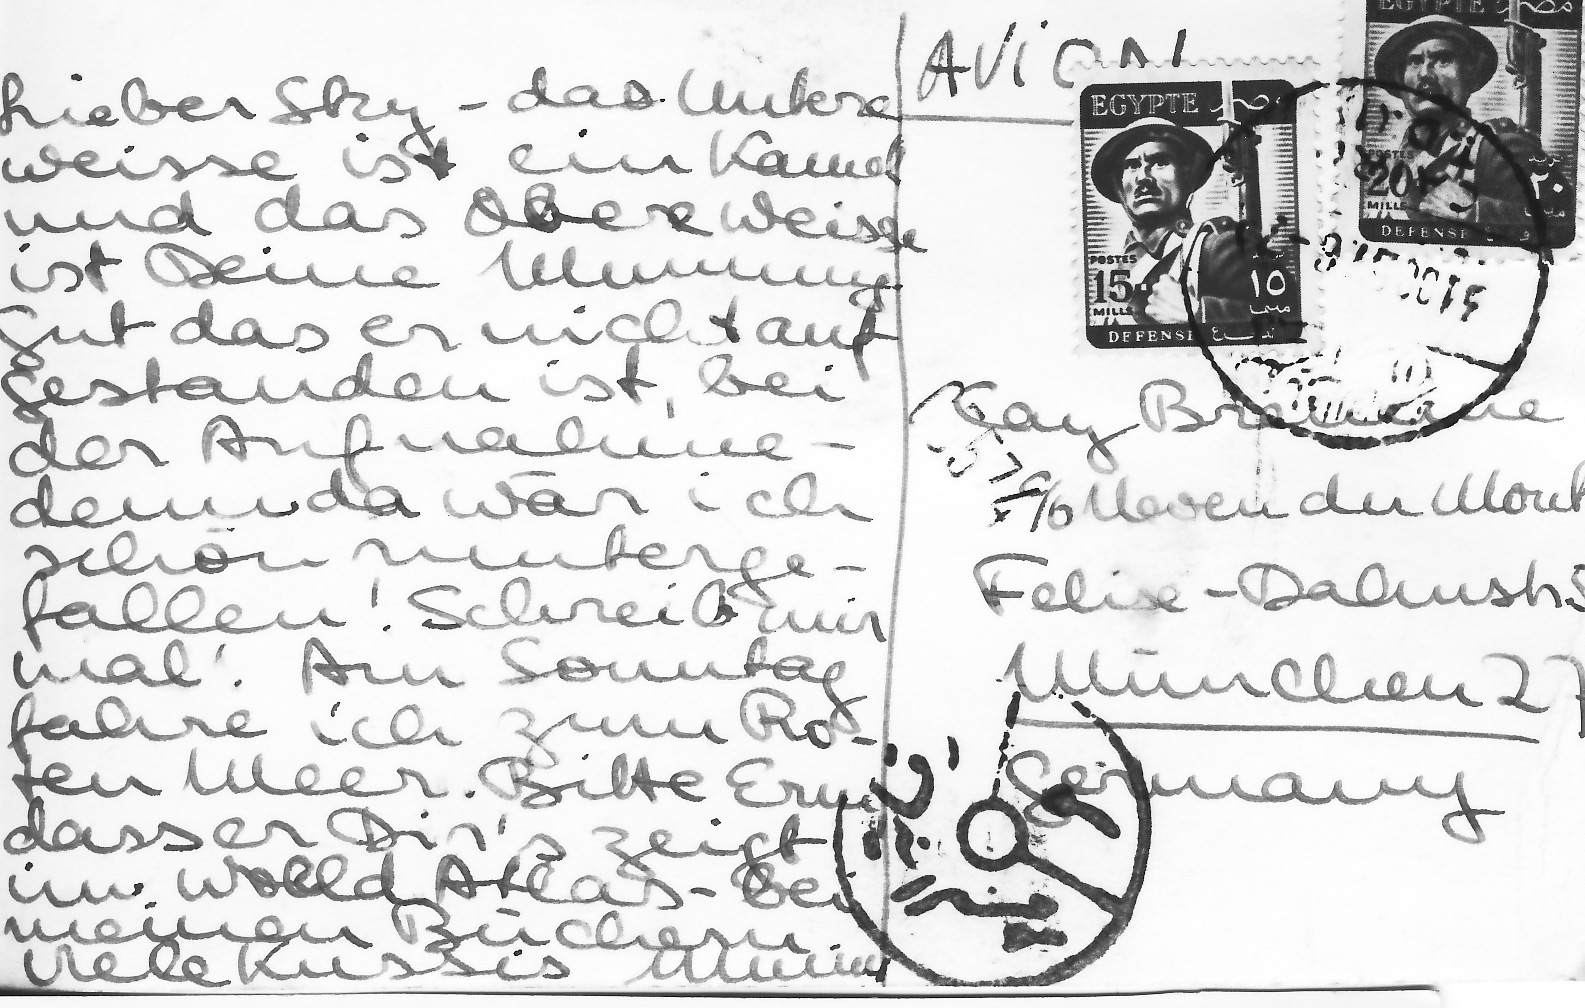 Lieber Sky - das Untere
weisse ist ein Kamel
und das Obere weisse
ist Deine Mummy.
gut das er nicht auf
gestanden ist, bei
der Aufnahme -
denn da wär ich
schön runterge-
fallen! Schreib mir
mal! Am Sonntag
fahre ich zum Ro-
ten Meer. Bitte Erni
dass er Dir's zeigt
im World Atlas - bei
meinen Büchern
viele Kussis Mummy
AVION
EGYPTE مصر
POSTES
15
MILLS
١٥
DEFENSE
EGYPTE مصر
POSTES
20
MILLS
٢٠
DEFENSE
Kay
c/o Neven du Mont
Felix-Dahnstr 5
München 27
Germany